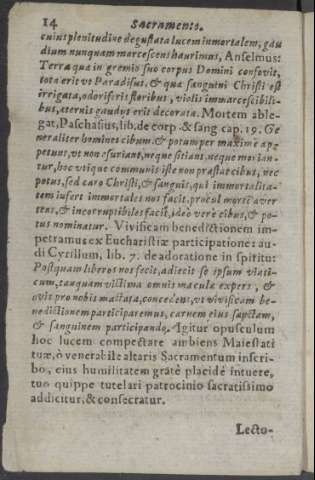 14 Sacramento.
cuius plenitudine degustata lucem inmortalem, gau
dium nunquam marcescens haurimus, Anselmus:
Terra qua in gremio suo corpus Domini confovit,
tota erit vt Paradisus, & qua sanguini Christi est
irrigata, odoriferis floribus, violis immarcescibili-
bus, æternis gaudijs erit decorata. Mortem able-
gat, Paschasius, lib. de corp. & sang. cap. 19. Ge
neraliter homines cibum & potum per maximè app
petunt, vt non esuriant, neque sitiant, neque morian-
tur, hoc vtique communis iste non præstat cibus, nec
potus, sed caro Christi, & sanguis, qui immortalita-
tem infert immortales nos facit, procul morti aver
tens, & incorruptibiles facit, ideò verè cibus, & po-
tus nominatur. Vivificam benedictionem im-
petramus ex Eucharistiæ participatione: au-
di Cyrillum, lib. 7. de adoratione in spiritu:
Postquam liberos nos fecit, adiecit se ipsum viati-
cum, tanquam victima omnis macula expers, &
ovis pro nobis mactata, concedens, vt vivificam be-
nedictionem participaremus, carnem eius sanctam,
& sanguinem participando. Agitur opusculum
hoc lucem compectare ambiens Maiestati
tuæ, ò venerabile altaris Sacramentum inscri-
bo, eius humilitatem gratè placidè intuere,
tuo quippe tutelari patrocinio sacratissimo
addicitur, & consecratur.
Lecto-